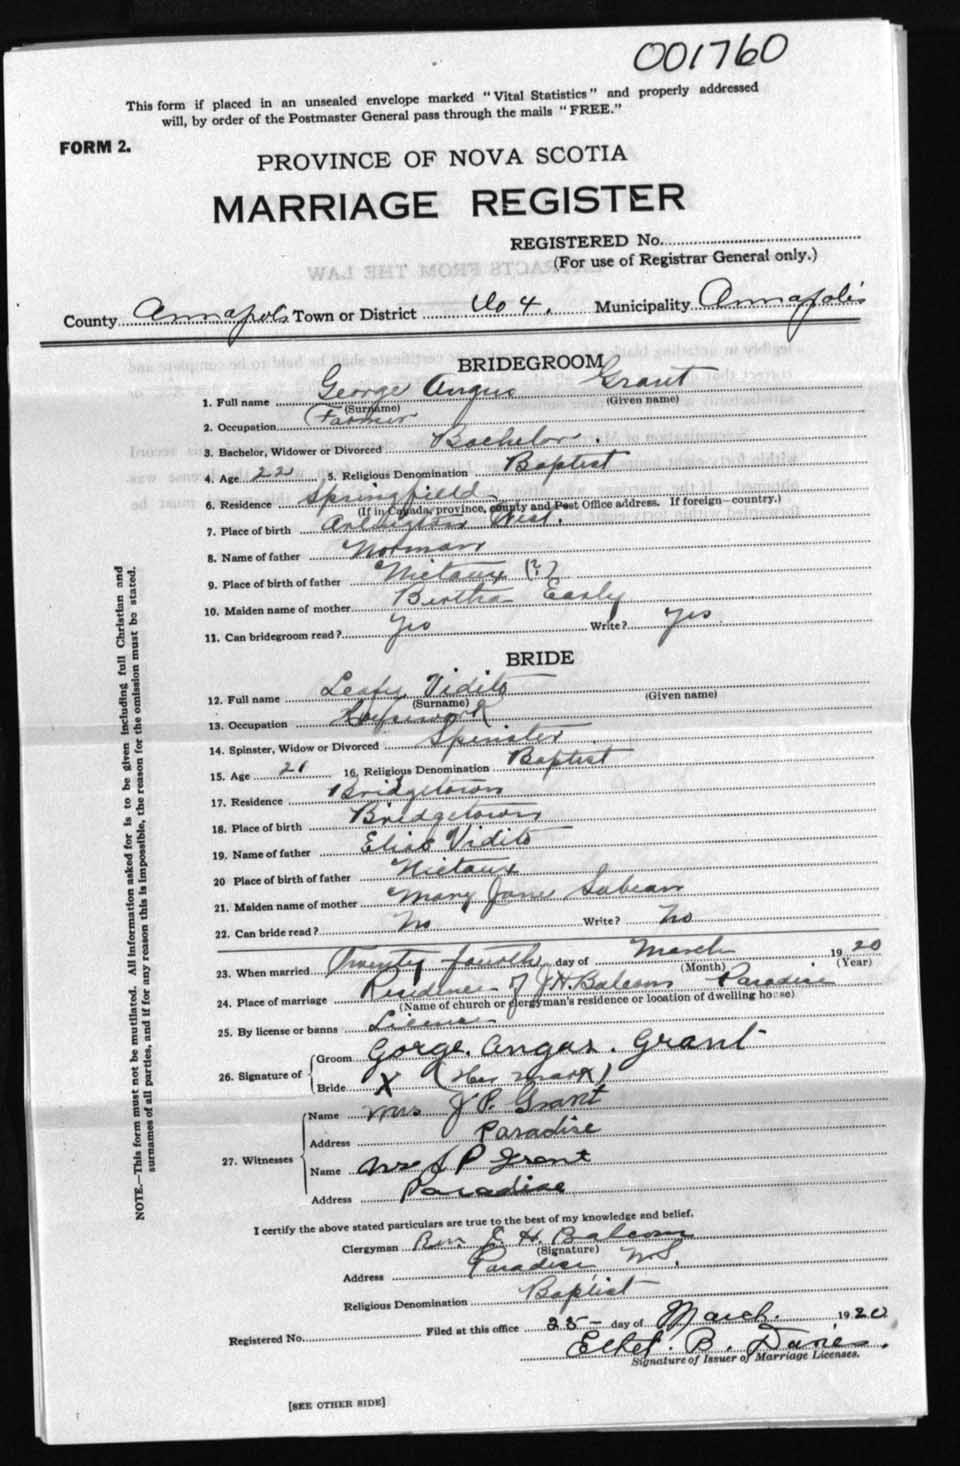 001760
This form if placed in an unsealed envelope marked "Vital Statistics" and properly addressed
will, by order of the Postmaster General pass through the mails "FREE."
FORM 2.
PROVINCE OF NOVA SCOTIA
MARRIAGE REGISTER
REGISTERED No.
(For use of Registrar General only.)
County Annapolis Town or District No 4. Municipality Annapolis
BRIDEGROOM
1. Full name George Angus Grant
(Surname) (Given name)
2. Occupation Farmer
3. Bachelor, Widower or Divorced Bachelor.
4. Age 22 5. Religious Denomination Baptist
6. Residence Springfield
(If in Canada, province, county and Post Office address. If foreign—country.)
7. Place of birth Arlington West.
8. Name of father Norman
9. Place of birth of father Nictaux (?)
10. Maiden name of mother Bertha Early
11. Can bridegroom read? Yes Write? Yes
BRIDE
12. Full name Leafy Vidito
(Surname) (Given name)
13. Occupation Housework
14. Spinster, Widow or Divorced Spinster
15. Age 21 16. Religious Denomination Baptist
17. Residence Bridgetown
18. Place of birth Bridgetown
19. Name of father Elias Vidito
20 Place of birth of father Nictaux
21. Maiden name of mother Mary Jane Sabean
22. Can bride read? No Write? No
23. When married Twenty fourth day of March 1920
(Month) (Year)
24. Place of marriage Residence of J.H. Balcom Paradise
(Name of church or clergyman's residence or location of dwelling house)
25. By license or banns License
26. Signature of
Groom Gorge. Angas. Grant
Bride X (Her mark)
27. Witnesses
Name Mrs J P. Grant
Address Paradise
Name J P Grant
Address Paradise
I certify the above stated particulars are true to the best of my knowledge and belief.
Clergyman Rev. J. H. Balcom
(Signature)
Address Paradise, N.S.
Religious Denomination Baptist
Registered No. Filed at this office 25- day of March. 1920
Ethel. B. Davies.
Signature of Issuer of Marriage Licenses.
[SEE OTHER SIDE]
NOTE.—This form must not be mutilated. All information asked for is to be given including full Christian and
surnames of all parties, and if for any reason this is impossible, the reason for the omission must be stated.